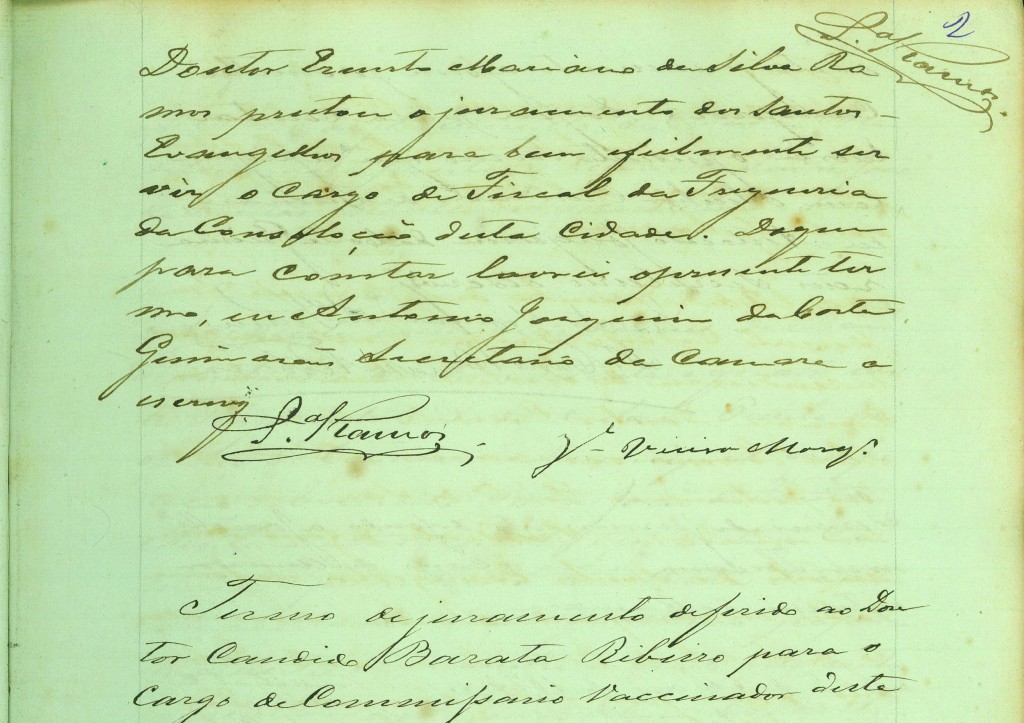 2
S.ª Ramos.
Doutor Ernesto Mariano da Silva Ra
mos prestou o juramento dos Santos
Evangelhos para bem e fielmente ser
vir o cargo de Fiscal da Freguesia
da Consolação desta Cidade. Do que
para constar lavrei o presente ter
mo, eu Antonio Joaquim da Costa
Guimarães Secretario da Camara o
escrevy.
S.ª Ramos. Vieira
Termo de juramento deferido ao Dou
tor Candido Barata Ribeiro para o
cargo de Commissario Vaccinador deste